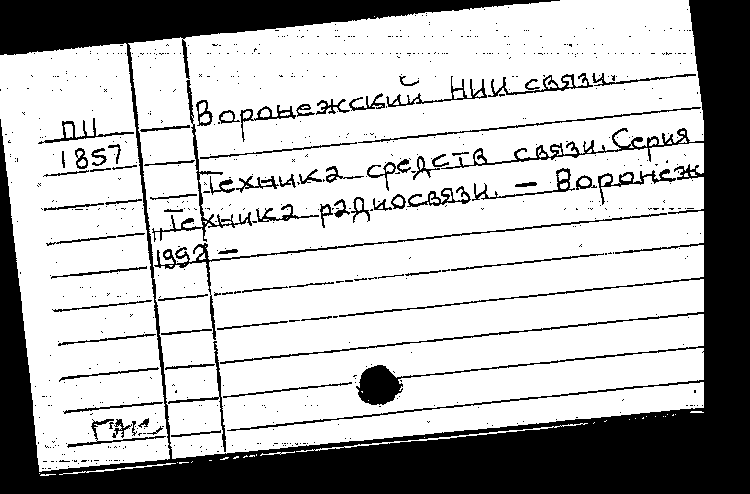 Воронежский НИИ связи.
П11
1857
Техника средств связи. Серия
„Техника радиосвязи. — Воронеж
1992 —